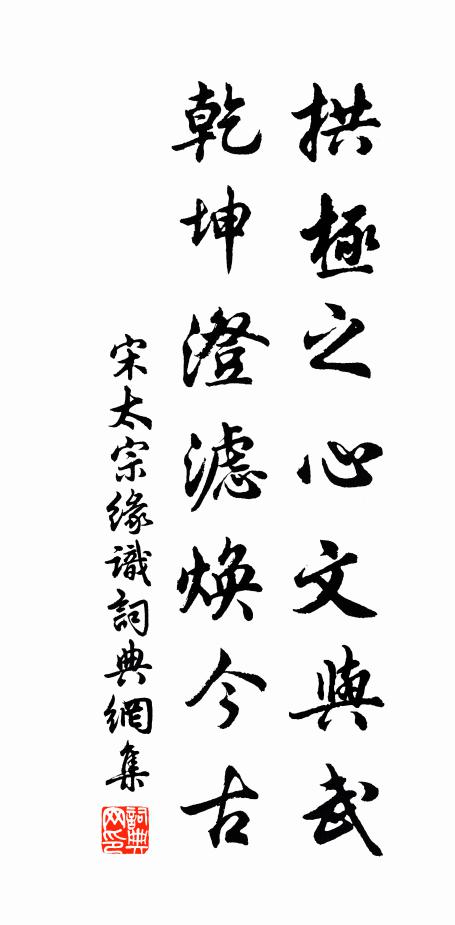 拱極之心文與武
乾坤澄濾煥今古
宋太宗緣識詞典網集
詞典網印